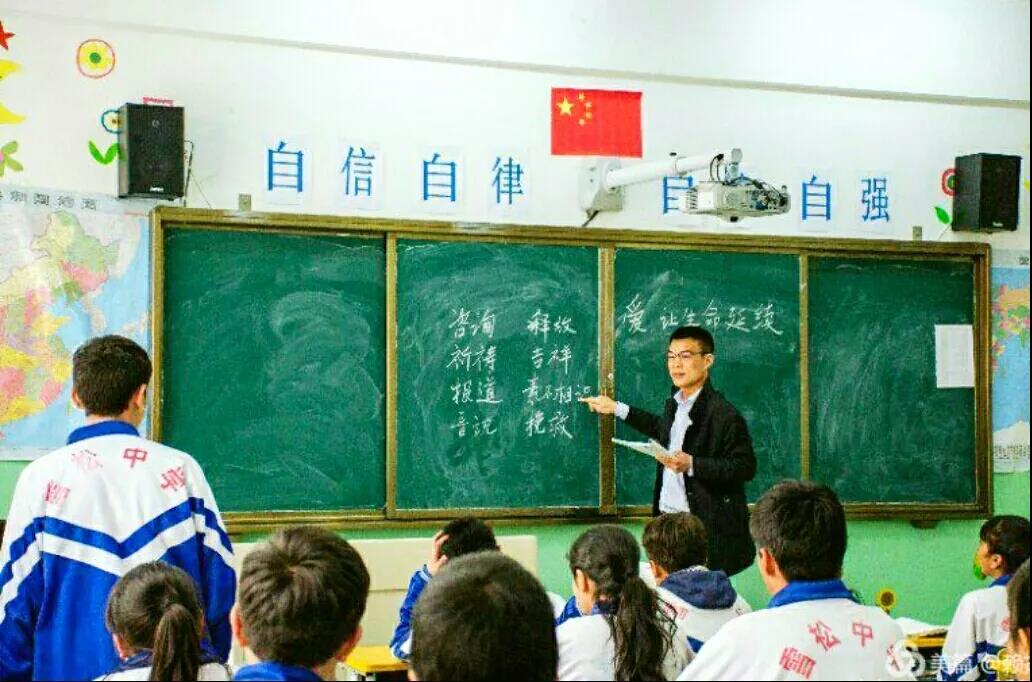 自信 自律 自 自强
咨询 释放
祈待 吉祥
报道 素不相识
音讯 挽救
爱 让生命延续
松中学
松中
美篇